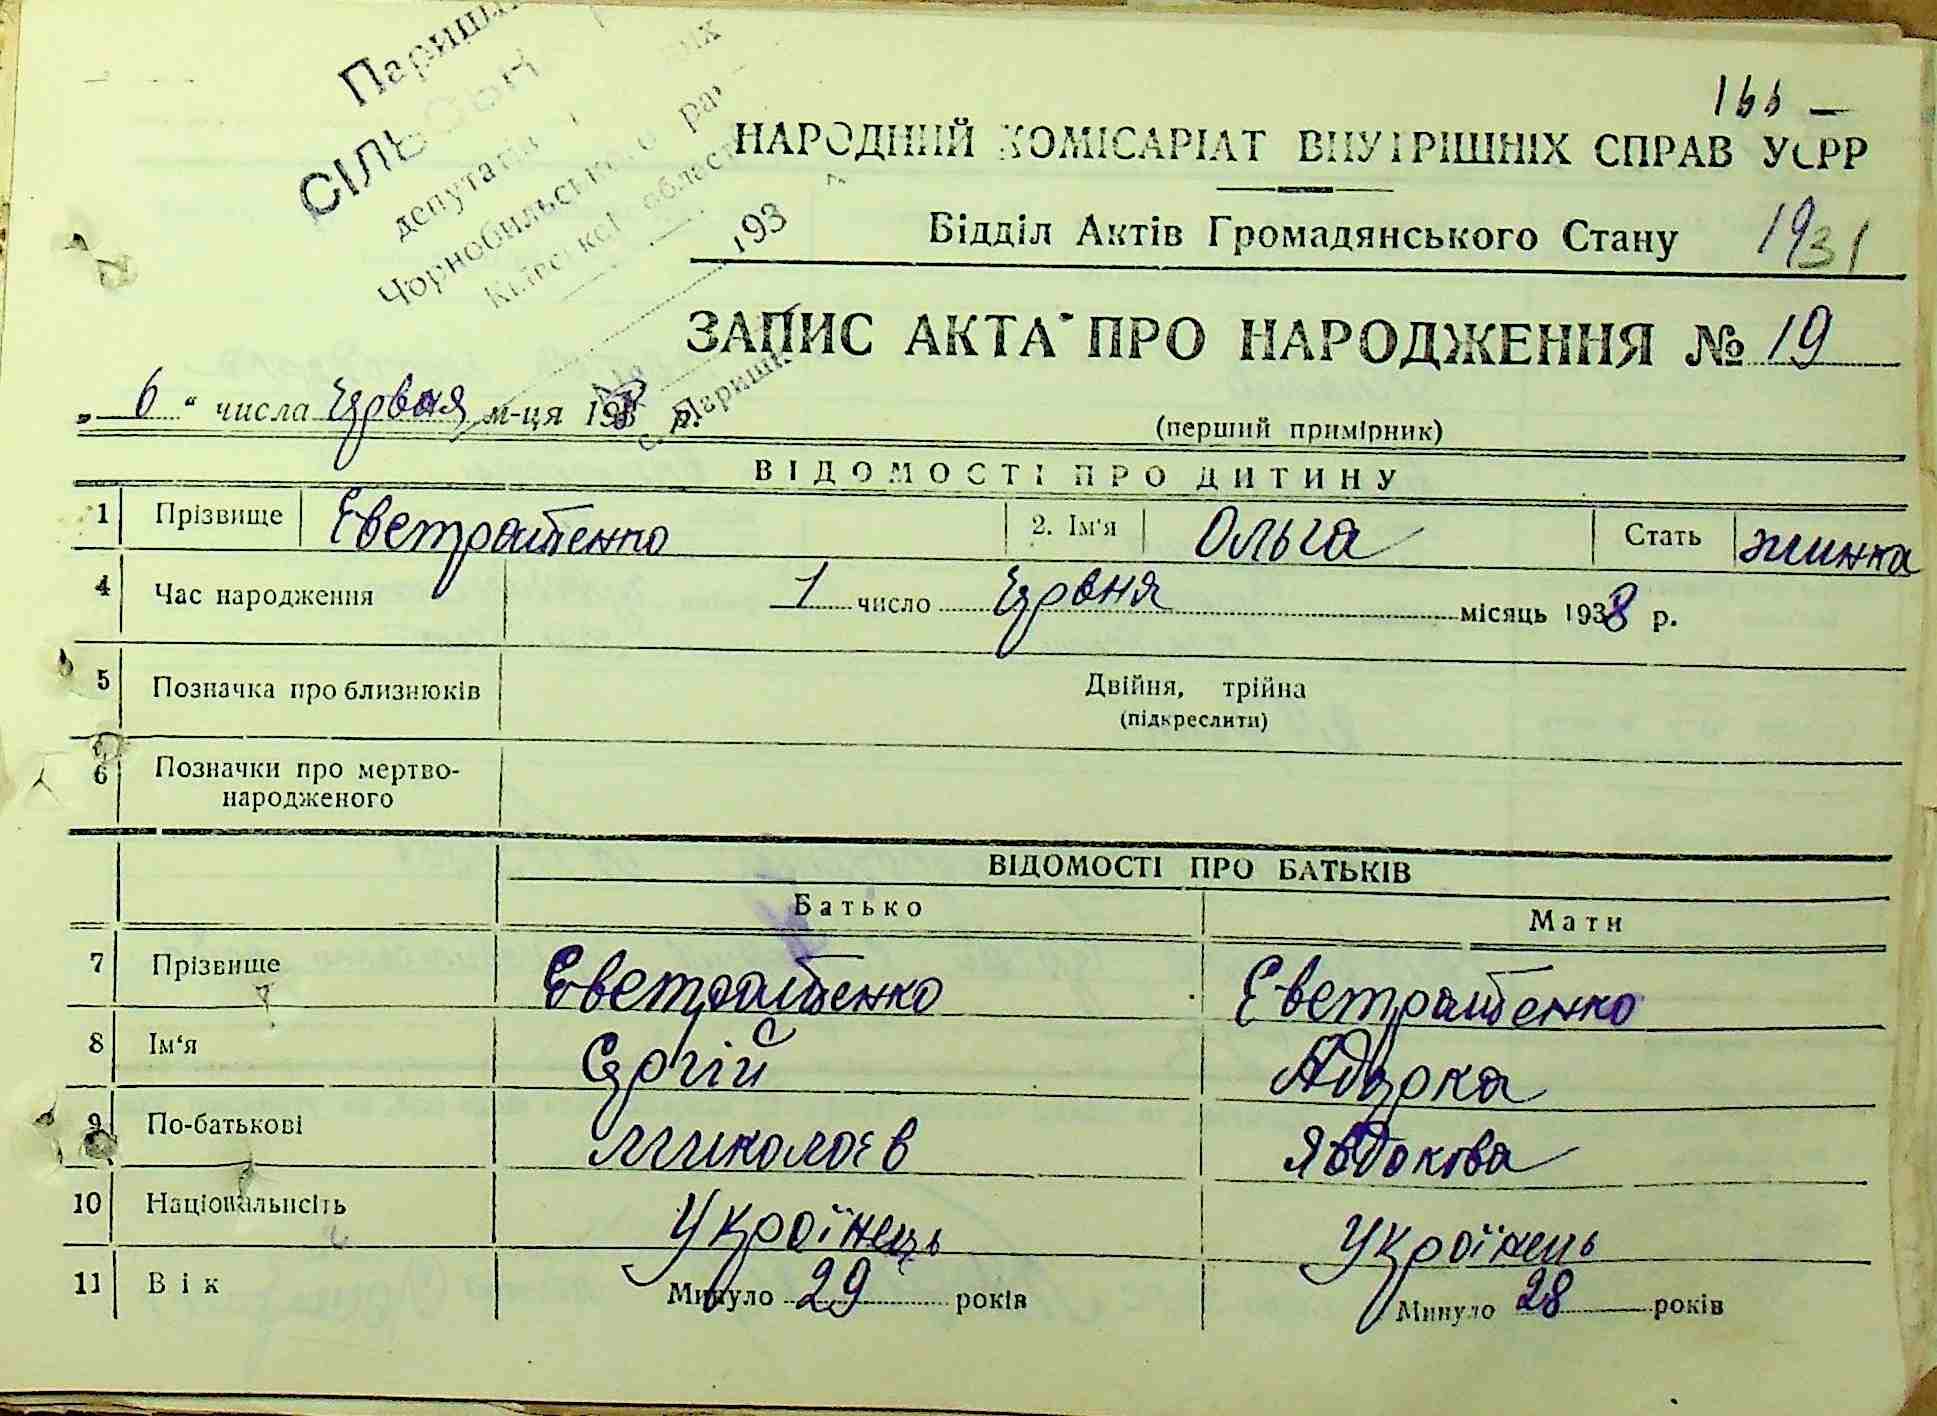 166 —
Паришів
СІЛЬСЬК
депутатів
Чорнобильського ра
Київської області
193
с. Паришів
НАРОДНИЙ КОМІСАРІАТ ВНУТРІШНІХ СПРАВ УСРР
Відділ Актів Громадянського Стану 1931
ЗАПИС АКТА ПРО НАРОДЖЕННЯ № 19
„ 6 “ числа червня м-ця 1938 р.
(перший примірник)
ВІДОМОСТІ ПРО ДИТИНУ
1 Прізвище Евстратенко 2. Ім'я Ольга Стать жинка
4 Час народження 1 число червня місяць 1938 р.
5 Позначка про близнюків Двійня, трійна
(підкреслити)
6 Позначки про мертво-
народженого
ВІДОМОСТІ ПРО БАТЬКІВ
Батько Мати
7 Прізвище Евстратенко Евстратенко
8 Ім'я Сергій
9 По-батькові Миколоєв
10 Національність Україінець Україінець
11 Вік Минуло 29 років Минуло 28 років